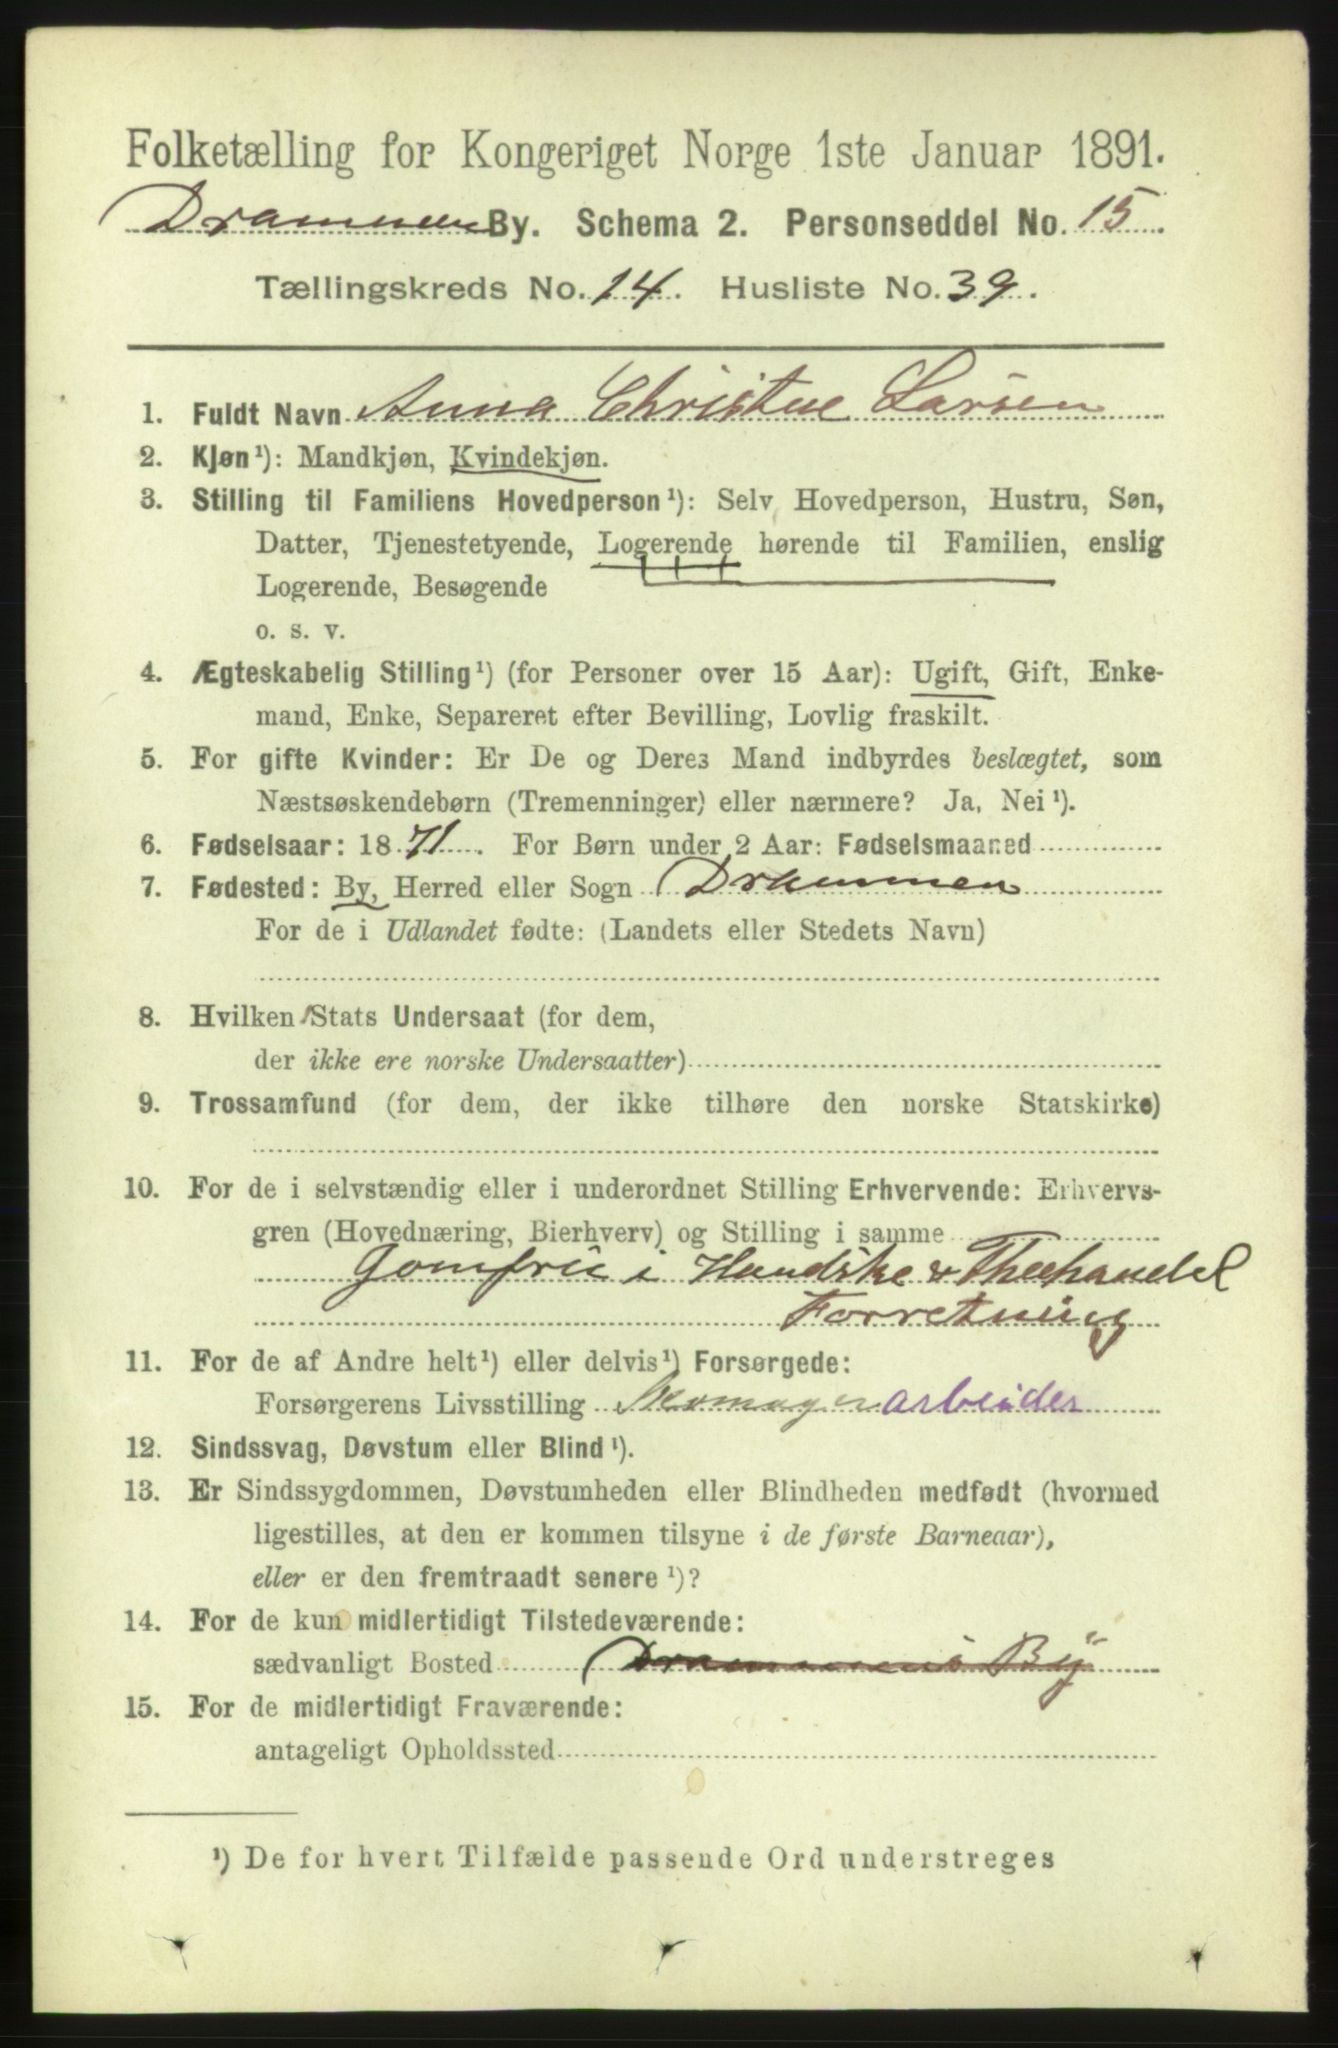 Folketælling for Kongeriget Norge 1ste Januar 1891.
Drammen By. Schema 2. Personseddel No. 15.
Tællingskreds No. 14. Husliste No. 39.
1. Fuldt Navn Anna Christine Larsen
2. Kjøn¹): Mandkjøn, Kvindekjøn.
3. Stilling til Familiens Hovedperson¹): Selv Hovedperson, Hustru, Søn,
Datter, Tjenestetyende, Logerende hørende til Familien, enslig
Logerende, Besøgende
o. s. v.
4. Ægteskabelig Stilling¹) (for Personer over 15 Aar): Ugift, Gift, Enke-
mand, Enke, Separeret efter Bevilling, Lovlig fraskilt.
5. For gifte Kvinder: Er De og Deres Mand indbyrdes beslægtet, som
Næstsøskendebørn (Tremenninger) eller nærmere? Ja, Nei¹).
6. Fødselsaar: 1871. For Børn under 2 Aar: Fødselsmaaned
7. Fødested: By, Herred eller Sogn Drammen
For de i Udlandet fødte: (Landets eller Stedets Navn)
8. Hvilken Stats Undersaat (for dem,
der ikke ere norske Undersaatter)
9. Trossamfund (for dem, der ikke tilhøre den norske Statskirke)
10. For de i selvstændig eller i underordnet Stilling Erhvervende: Erhvervs-
gren (Hovednæring, Bierhverv) og Stilling i samme
Jomfru i Handske & Theehandel
Forretning
11. For de af Andre helt¹) eller delvis¹) Forsørgede:
Forsørgerens Livsstilling Skomagerarbeider
12. Sindssvag, Døvstum eller Blind¹).
13. Er Sindssygdommen, Døvstumheden eller Blindheden medfødt (hvormed
ligestilles, at den er kommen tilsyne i de første Barneaar),
eller er den fremtraadt senere¹)?
14. For de kun midlertidigt Tilstedeværende:
sædvanligt Bosted Drammens By
15. For de midlertidigt Fraværende:
antageligt Opholdssted
¹) De for hvert Tilfælde passende Ord understreges